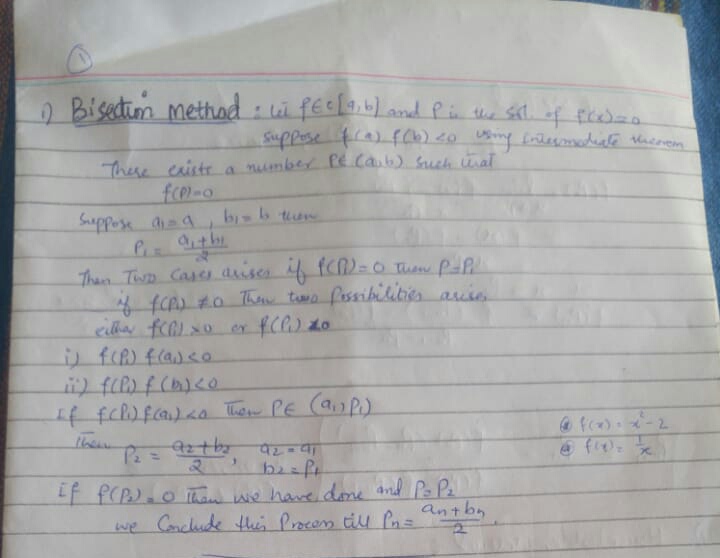 1
1) Bisection method : Let f∈c[a,b] and P is the sol. of f(x)=0
suppose f(a) f(b) <0 using intermediate theorem
There exists a number P∈(a,b) such that
f(P)=0
Suppose a₁=a , b₁=b then
P₁ = (a₁+b₁)/2
Then Two Cases arises if f(P₁)=0 then P=P₁
if f(P₁) ≠0 Then two Possibilities arises
either f(P₁) >0 or f(P₁) <0
i) f(P₁) f(a₁)<0
ii) f(P₁) f(b₁)<0
If f(P₁)f(a₁)<0 Then P∈ (a₁,P₁)
Then P₂ = (a₂+b₂)/2 , a₂=a₁
b₂=P₁
@ f(x) = x²-2
@ f(x) = 1/x
If f(P₂)=0 Then we have done and P=P₂
we Conclude this Process till Pₙ= (aₙ+bₙ)/2 .